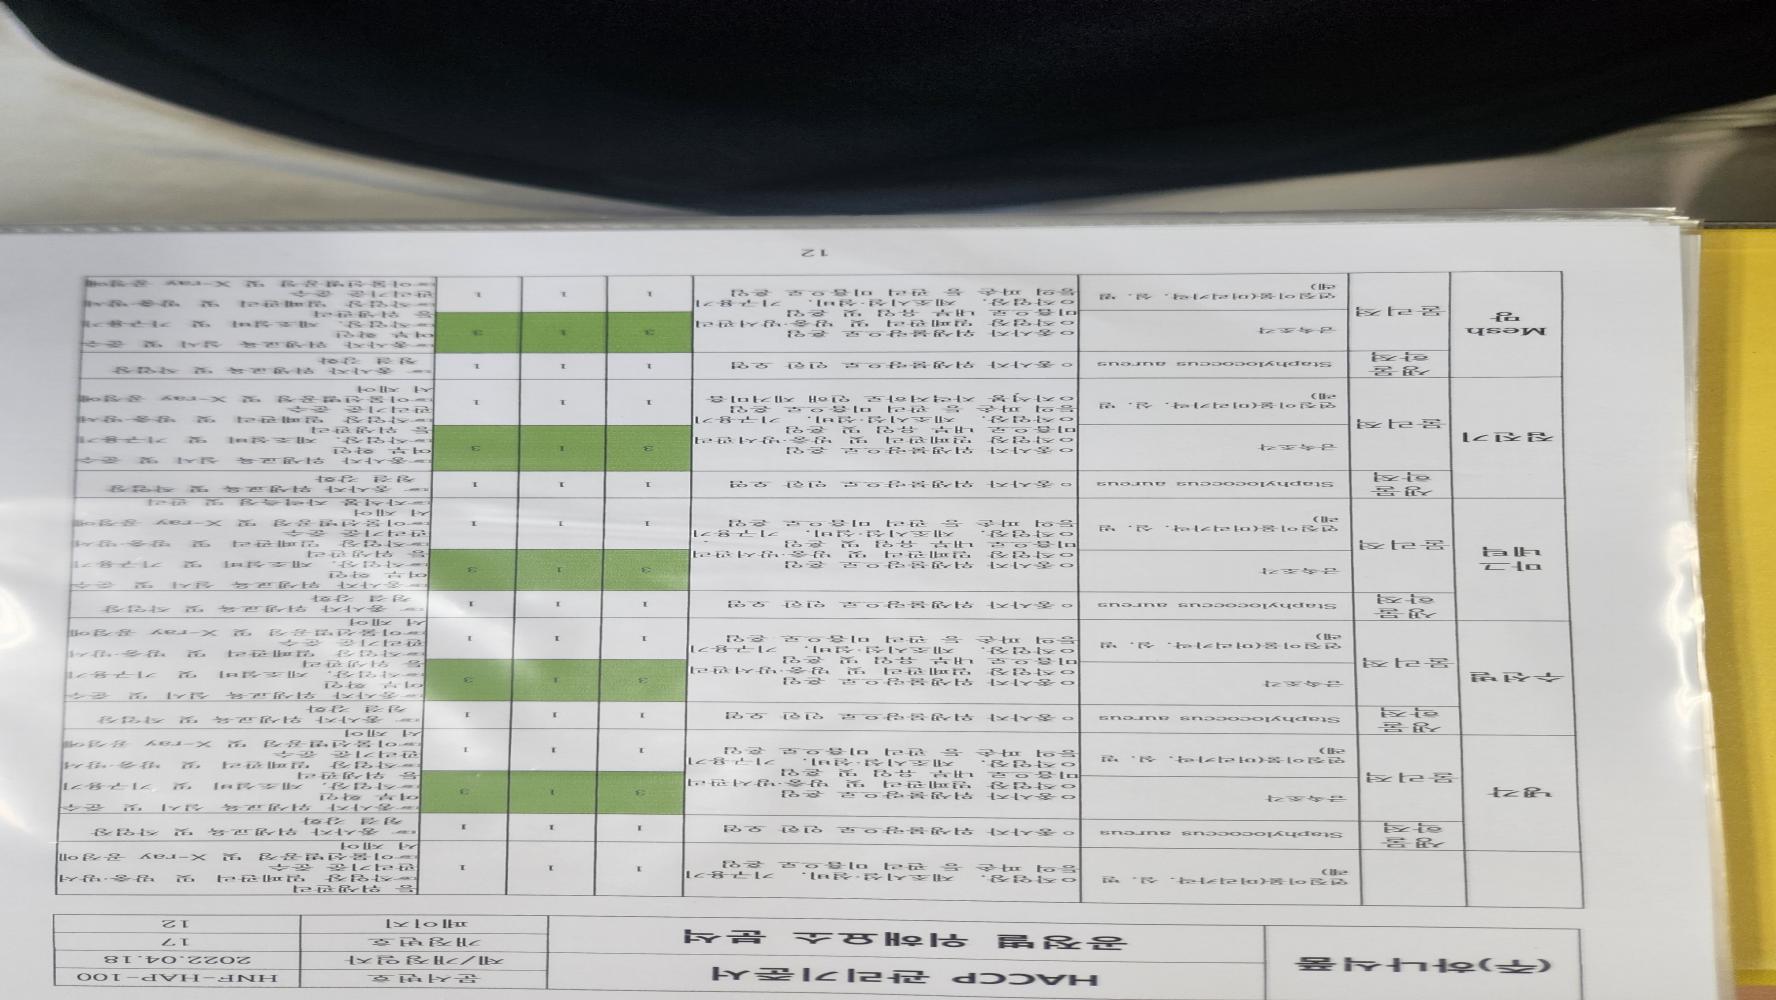 (주)하나식품
HACCP 관리기준서
공정별 위해요소 분석
문서번호 HNF-HAP-100
제/개정일자 2022.04.18
개정번호 17
페이지 12
연질이물(머리카락, 실, 벌레)
작업장, 제조시설·설비, 기구용기
등의 파손 등 관리 미흡으로 혼입
1 1 1
등 위생관리
☞작업장 밀폐관리 및 방충·방서
관리기준 준수
☞이물선별공정 및 X-ray 공정에
서 제어
냉각
생물학적
Staphylococcus aureus
○종사자 위생불량으로 인한 오염
1 1 1
☞ 종사자 위생교육 및 작업장
청결 강화
물리적
금속조각
연질이물(머리카락, 실, 벌레)
○종사자 위생불량으로 혼입
○작업장 밀폐관리 및 방충·방서관리
미흡으로 내부 유입 및 혼입
○작업장, 제조시설·설비, 기구용기
등의 파손 등 관리 미흡으로 혼입
3 1 3
1 1 1
☞종사자 위생교육 실시 및 준수
여부 확인
☞작업장, 제조설비 및 기구용기
등 위생관리
☞작업장 밀폐관리 및 방충·방서
관리기준 준수
☞이물선별공정 및 X-ray 공정에
서 제어
수선별
생물학적
Staphylococcus aureus
○종사자 위생불량으로 인한 오염
1 1 1
☞ 종사자 위생교육 및 작업장
청결 강화
물리적
금속조각
연질이물(머리카락, 실, 벌레)
○종사자 위생불량으로 혼입
○작업장 밀폐관리 및 방충·방서관리
미흡으로 내부 유입 및 혼입
○작업장, 제조시설·설비, 기구용기
등의 파손 등 관리 미흡으로 혼입
3 1 3
1 1 1
☞종사자 위생교육 실시 및 준수
여부 확인
☞작업장, 제조설비 및 기구용기
등 위생관리
☞작업장 밀폐관리 및 방충·방서
관리기준 준수
☞이물선별공정 및 X-ray 공정에
서 제어
마그네틱
생물학적
Staphylococcus aureus
○종사자 위생불량으로 인한 오염
1 1 1
☞ 종사자 위생교육 및 작업장
청결 강화
물리적
금속조각
연질이물(머리카락, 실, 벌레)
○종사자 위생불량으로 혼입
○작업장 밀폐관리 및 방충·방서관리
미흡으로 내부 유입 및 혼입
○작업장, 제조시설·설비, 기구용기
등의 파손 등 관리 미흡으로 혼입
3 1 3
1 1 1
☞종사자 위생교육 실시 및 준수
여부 확인
☞작업장, 제조설비 및 기구용기
등 위생관리
☞작업장 밀폐관리 및 방충·방서
관리기준 준수
☞이물선별공정 및 X-ray 공정에
서 제어
☞자석봉 자력측정 및 관리
정전기
생물학적
Staphylococcus aureus
○종사자 위생불량으로 인한 오염
1 1 1
☞ 종사자 위생교육 및 작업장
청결 강화
물리적
금속조각
연질이물(머리카락, 실, 벌레)
○종사자 위생불량으로 혼입
○작업장 밀폐관리 및 방충·방서관리
미흡으로 내부 유입 및 혼입
○작업장, 제조시설·설비, 기구용기
등의 파손 등 관리 미흡으로 혼입
○자석봉 자력저하로 인해 제거미흡
3 1 3
1 1 1
☞종사자 위생교육 실시 및 준수
여부 확인
☞작업장, 제조설비 및 기구용기
등 위생관리
☞작업장 밀폐관리 및 방충·방서
관리기준 준수
☞이물선별공정 및 X-ray 공정에
서 제어
Mesh망
생물학적
Staphylococcus aureus
○종사자 위생불량으로 인한 오염
1 1 1
☞ 종사자 위생교육 및 작업장
청결 강화
물리적
금속조각
연질이물(머리카락, 실, 벌레)
○종사자 위생불량으로 혼입
○작업장 밀폐관리 및 방충·방서관리
미흡으로 내부 유입 및 혼입
○작업장, 제조시설·설비, 기구용기
등의 파손 등 관리 미흡으로 혼입
3 1 3
1 1 1
☞종사자 위생교육 실시 및 준수
여부 확인
☞작업장, 제조설비 및 기구용기
등 위생관리
☞작업장 밀폐관리 및 방충·방서
관리기준 준수
☞이물선별공정 및 X-ray 공정에
12